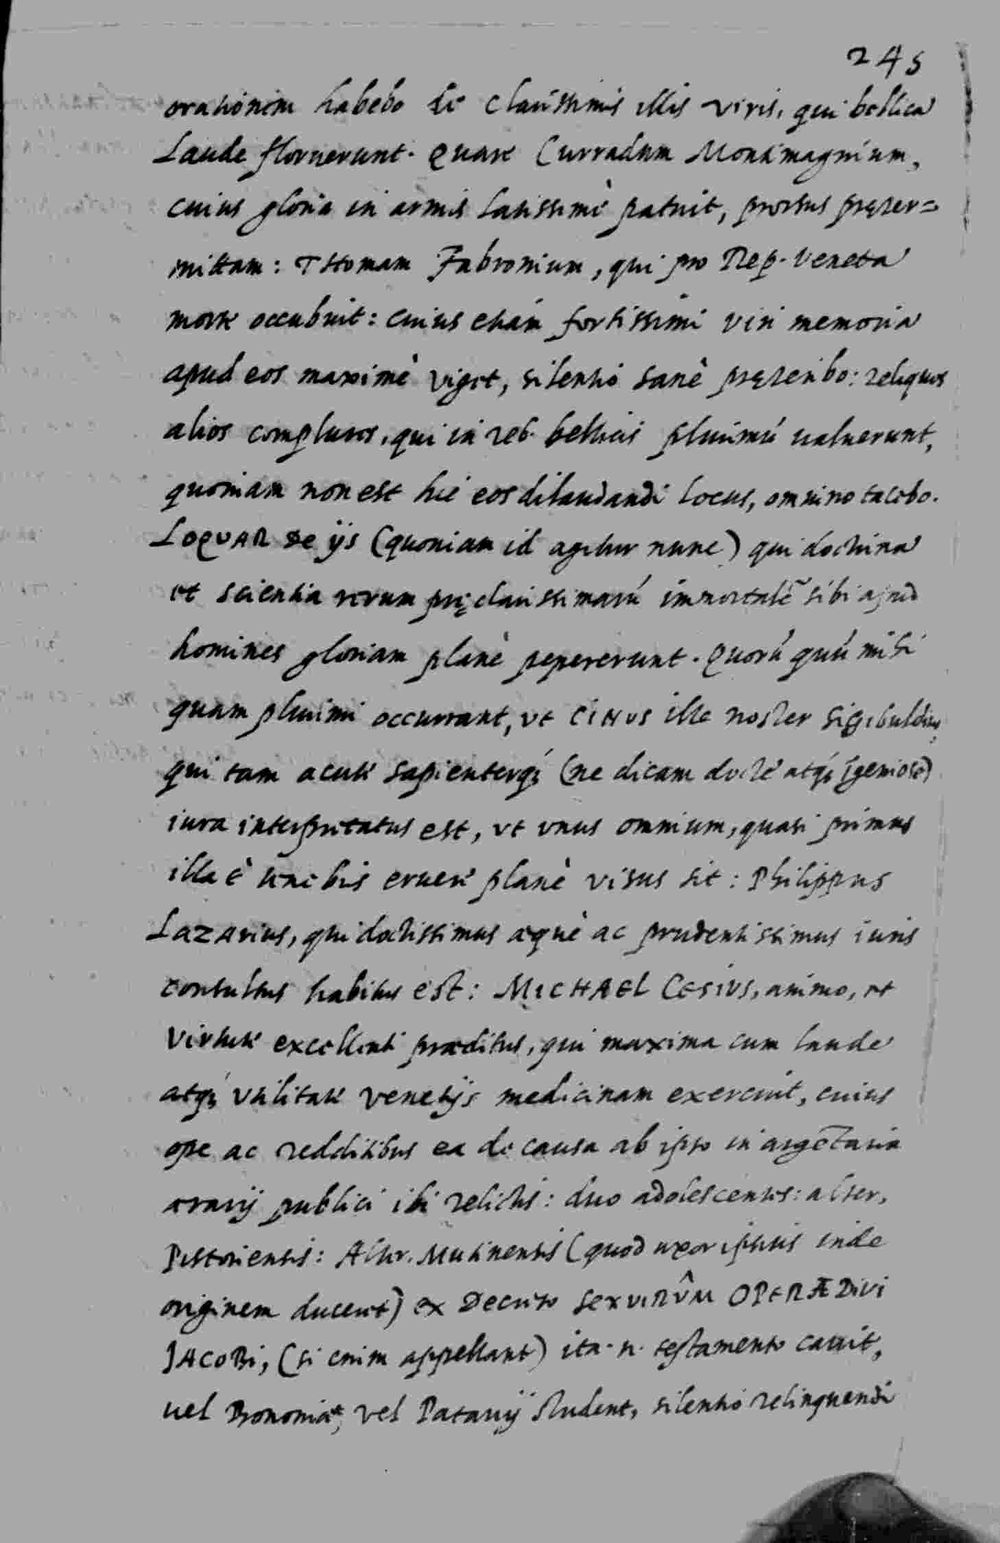 245
orationem habebo de clarissimis illis viris, qui bellica
Laude floruerunt. Quare Curradum Montimagnium,
cuius gloria in armis latissimè patuit, prorsus pręter=
mittam: THomam Fabronium, qui pro Rep. Veneta
morte occubuit: cuius etiàm fortissimi viri memoria
apud eos maximè viget, silentio sanè pręteribo: reliquos
alios complures, qui in reb. bellicis plurimú ualuerunt,
quoniam non est hic eos dilaudandi locus, omnino tacebo.
LOQUAR De ijs (quoniam id agitur nunc) qui doctrina
et scientia rerum pręclarissimarú immortalē sibi apud
homines gloriam planè pepererunt. Quorú quú mihi
quam plurimi occurrant, ut CINUS ille noster Sigibuldius,
qui tam acutè sapienterq; (ne dicam doctè atq; īgeniosè)
iura interpretatus est, ut unus omnium, quasi primus
illa è tenebris eruere planè visus sit: Philippus
Lazarius, qui doctissimus æquè ac prudentissimus iuris
consultus habitus est: MICHAEL CESIUS, animo, et
virtute excellenti præditus, qui maxima cum laude
atq; utilitate venetijs medicinam exercuit, cuius
ope ac redditibus ea de causa ab ipso in argētaria
ærarij publici ibi relictis: duo adolescentes: alter,
Pistoriensis: Alter. Mutinensis (quod uxor ipsius inde
originem duceret) ex Decreto SexviRûM OPERÆ Divi
JACOBi, (si enim appellant) ita. n. testamento cauit,
uel Bononiæ, vel Patavij student, silentio relinquendi